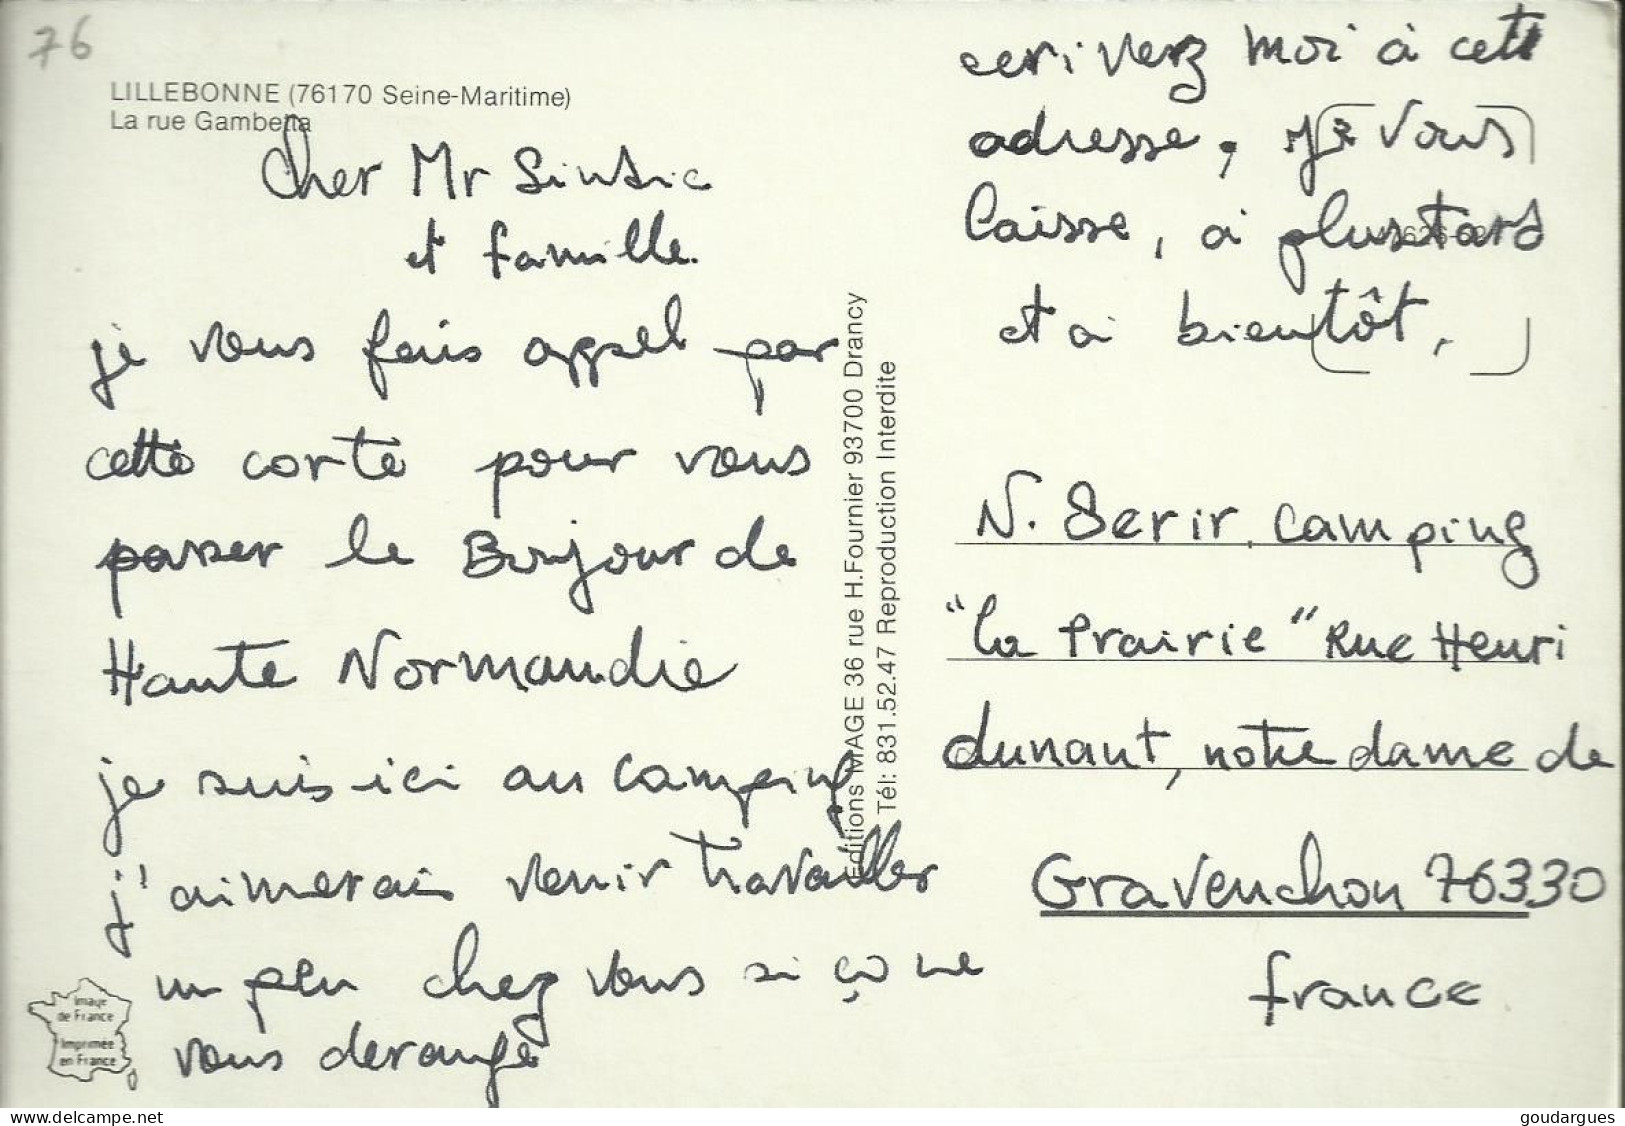 76
LILLEBONNE (76170 Seine-Maritime)
La rue Gambetta
Cher Mr
et famille.
je vous fais appel par
cette carte pour vous
passer le Bonjour de
Haute Normandie
je suis ici au camping
j'aimerais venir travailler
un peu chez vous si ça ne
vous derange
ecriverz moi à cette
adresse, je vous
laisse, à plustard
et a bientôt.
N. Serir, camping
"la Prairie" Rue Henri
dunant, notre dame de
Gravenchon 76330
france
Editions MAGE 36 rue H.Fournier 93700 Drancy
Tél: 831.52.47 Reproduction Interdite
Image
de France
Imprimée
en France
www.delcampe.net
goudargues